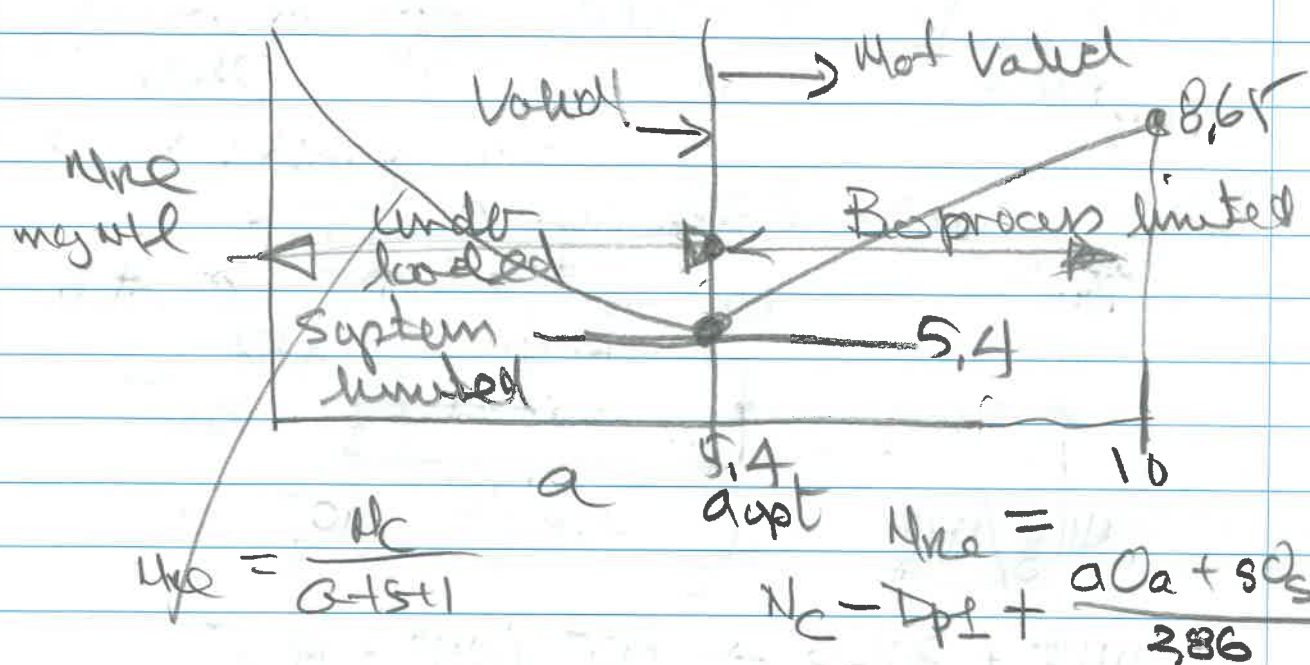 Not Valid
Valid
8,65
Nne
mgN/l
under
loaded
Bioprocess limited
System
limited
5,4
a
5,4
aopt
10
Nne = Nc / a+s+1
Nne =
Nc - Dp1 + aOa + sOs / 2,86